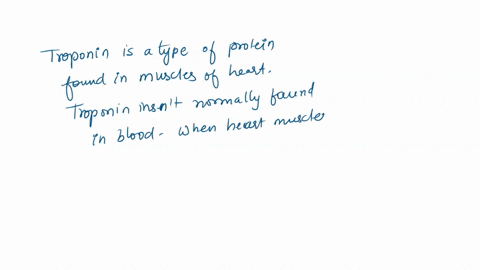 Troponin is a type of protein
found in muscles of heart.
Troponin insn't normally found
in blood - when heart muscles